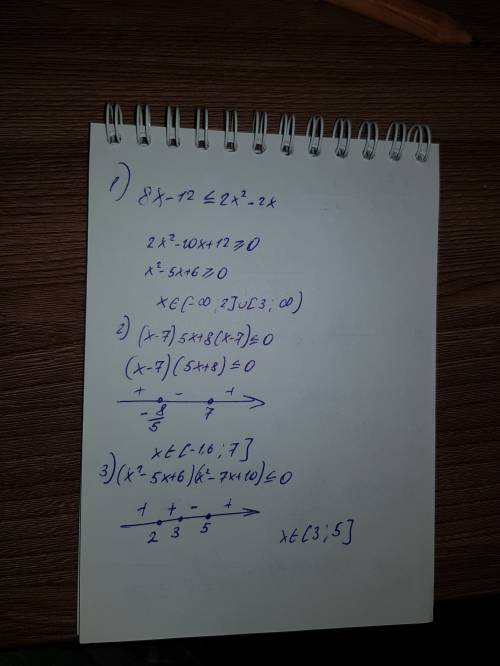 1) 8x-12 ≤ 2x²-2x
2x²-10x+12 ≥ 0
x²-5x+6 ≥ 0
x∈(-∞; 2]∪[3; ∞)
2) (x-7)5x+8(x-7) ≤ 0
(x-7)(5x+8) ≤ 0
+ - +
-8/5 7
x∈[-1,6; 7]
3) (x²-5x+6)(x²-7x+10) ≤ 0
+ + - +
2 3 5
x∈[3; 5]